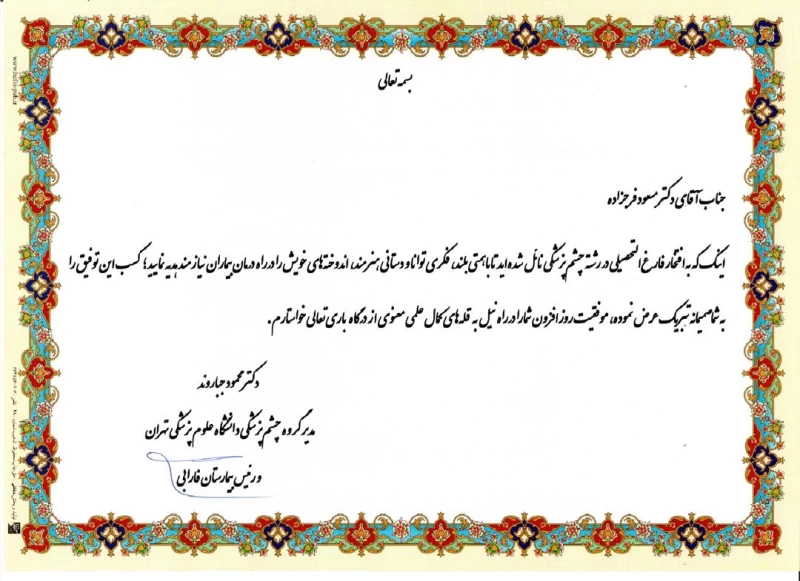 بسمه تعالی
جناب آقای دکتر مسعود فرجزاده
اینک که به افتخار فارغ التحصیلی در رشته چشم پزشکی نائل شده اید تا با همتی بلند، فکری توانا و دستانی هنرمند، اندوخته های خویش را در راه درمان بیماران نیازمند هدیه نمایید؛ کسب این توفیق را
به شما صمیمانه تبریک عرض نموده، موفقیت روز افزون شما را در راه نیل به قله های کمال علمی معنوی از درگاه باری تعالی خواستارم.
دکتر محمود جباروند
مدیر گروه چشم پزشکی دانشگاه علوم پزشکی تهران
و رئیس بیمارستان فارابی